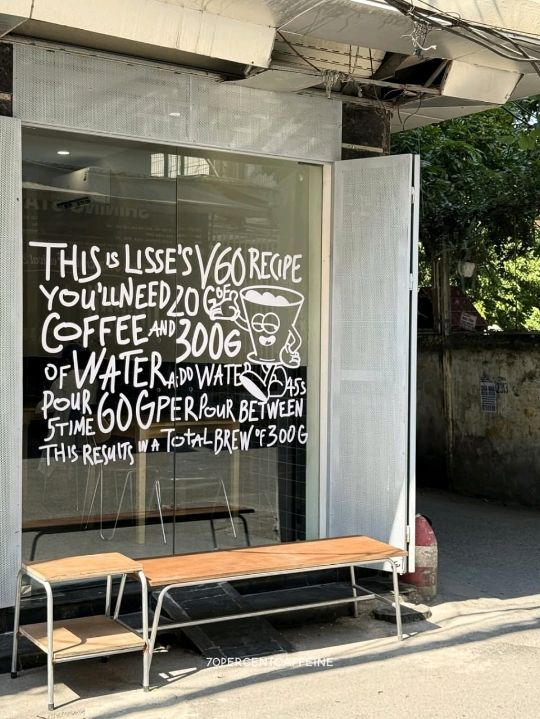 THIS IS LISSE'S V60 RECIPE
YOU'LL NEED 20 G OF
COFFEE AND 300G
OF WATER ADD WATER
POUR 45S
5TIME 60G PER POUR BETWEEN
THIS RESULTS IN A TOTAL BREW OF 300G
70PERCENTCAFFEINE